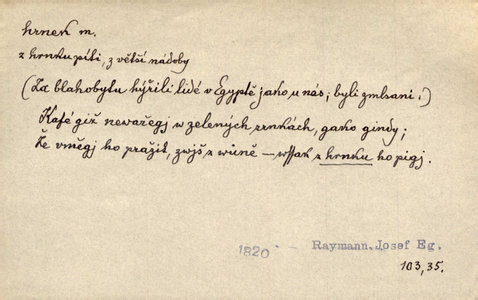 hrnek m.
z hrnku píti, z větší nádoby
(Za blahobytu hýřili lidé v Egyptě jako u nás; byli zmlsaní.)
Kafé giž newařegj w zelených zrnkách, gako gindy;
Že vmějj ho pražit, zwjš z wůně — wssak z hrnku ho pigj.
1820 — Raymann Josef Eg.
103,35.